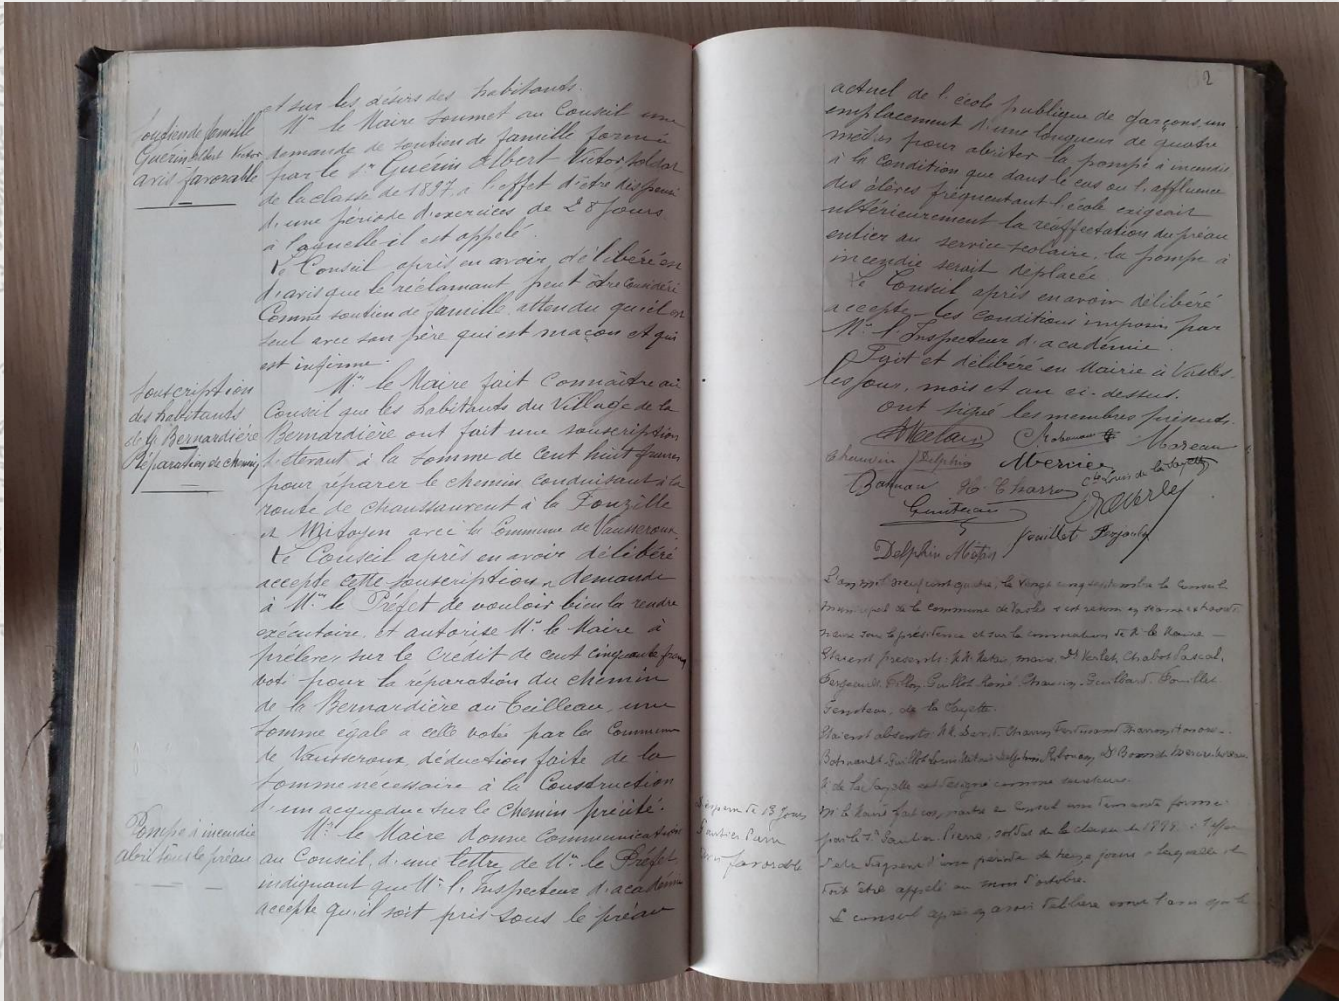 et sur les désirs des habitants.
Soutien de famille
Guérin Albert Victor
avis favorable
Mr le Maire soumet au Conseil une
demande de soutien de famille formée
par le sr Guérin Albert Victor soldat
de la classe de 1897, a l'effet d'être dispensé
d'une période d'exercices de 28 jours
à laquelle il est appelé.
Le Conseil après en avoir délibéré est
d'avis que le réclamant peut être considéré
comme soutien de famille, attendu qu'il est
seul avec son père qui est maçon et qui
est infirme.
Souscription
des habitants
de la Bernardière
Réparation de chemin
Mr le Maire fait connaître au
Conseil que les habitants du Village de la
Bernardière ont fait une souscription
s'élevant à la somme de cent huit francs
pour réparer le chemin conduisant à la
route de chaussauvent à la Fouzille
et Mitoyen avec la Commune de Vausseroux.
Le Conseil après en avoir délibéré
accepte cette souscription, demande
à Mr le Préfet de vouloir bien la rendre
exécutoire, et autorise Mr le Maire à
prélever sur le crédit de cent cinquante francs
voté pour la réparation du chemin
de la Bernardière au Teilleau, une
somme égale a celle votée par la Commune
de Vausseroux, déduction faite de la
somme nécessaire à la Construction
d'un acqueduc sur le chemin précité.
Pompe à incendie
abri sous le préau
Mr le Maire donne Communication
au Conseil, d'une lettre de Mr le Préfet,
indiquant que Mr l'Inspecteur d'académie
accepte qu'il soit pris sous le préau
2
actuel de l'école publique de garçons, un
emplacement d'une longueur de quatre
mètres pour abriter la pompe à incendie
à la condition que dans le cas ou l'affluence
des élèves fréquentant l'école exigerait
ultérieurement la réaffectation du préau
entier au service scolaire, la pompe à
incendie serait déplacée.
Le Conseil après en avoir délibéré
accepte les conditions imposées par
Mr l'Inspecteur d'académie.
Fait et délibéré en Mairie à Vasles
les jour, mois et an ci-dessus.
ont signé les membres présents.
Moreau
Chauvin Delphin Mercier Cte Louis de la Fayette
Delphin
L'an mil neuf cent quatre, le vingt cinq septembre le Conseil
municipal de la commune de Vasles s'est réuni en séance extraordi-
naire sous la présidence et sur la convocation de M. le Maire
Etaient présents: maire, Dr Verlet, Chabot Pascal,
Guillot René Guillard
de la Fayette.
Etaient absents:
de la Fayette est désigné comme secrétaire.
Dispense de 13 jours
avis favorable
M. le Maire fait connaître au Conseil une demande formée
par le Sr Pierre, soldat de la classe de a l'effet
d'être dispensé d'une période de treize jours a laquelle il
doit être appelé au mois d'octobre.
Le conseil après en avoir délibéré émet l'avis que le